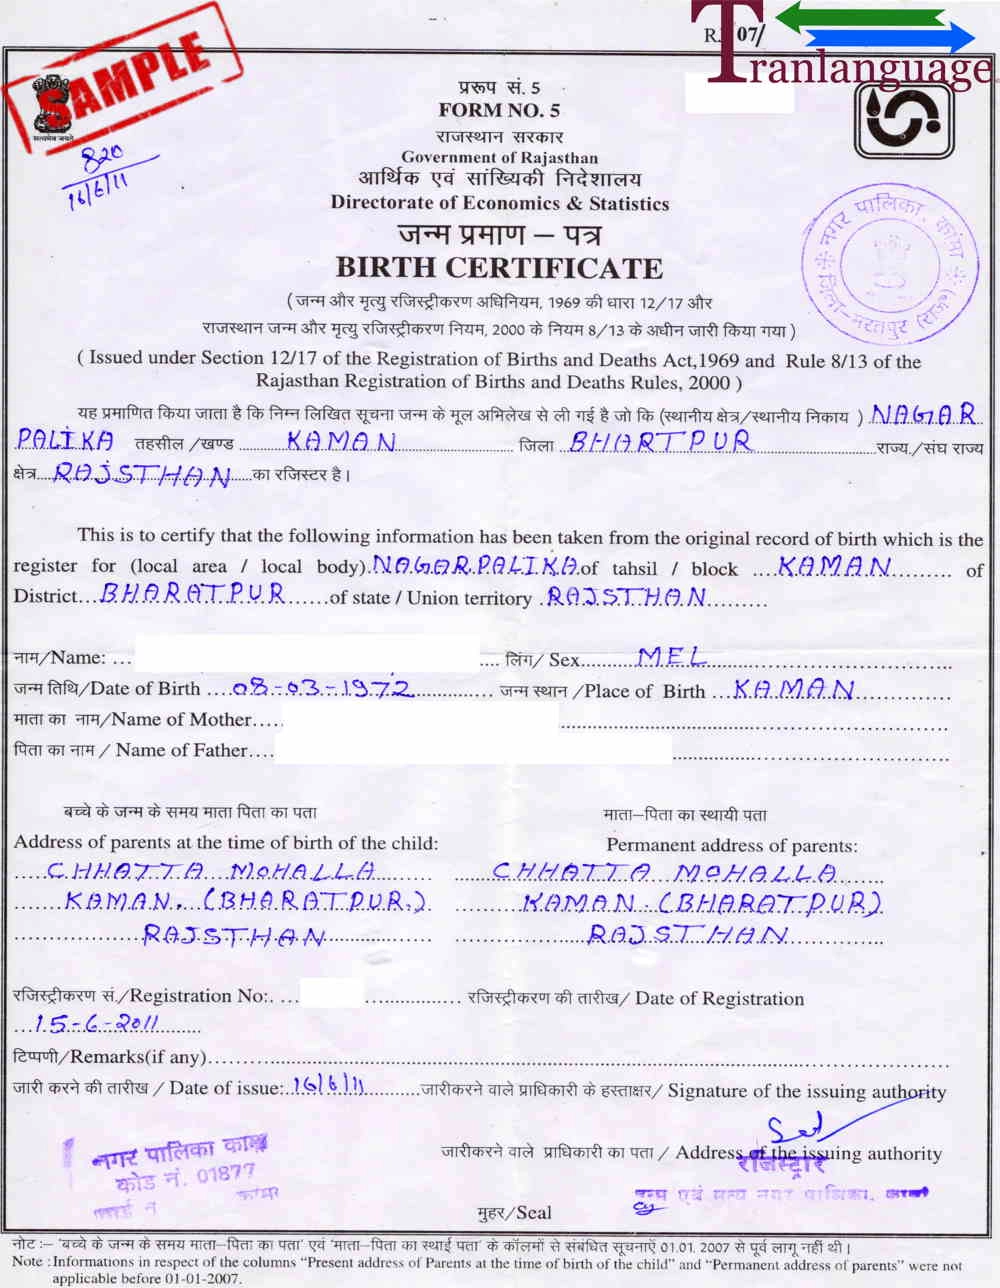 RJ 07/
Tranlanguage
SAMPLE
सत्यमेव जयते
820
16/6/11
प्ररूप सं. 5
FORM NO. 5
राजस्थान सरकार
Government of Rajasthan
आर्थिक एवं सांख्यिकी निदेशालय
Directorate of Economics & Statistics
जन्म प्रमाण – पत्र
BIRTH CERTIFICATE
नगर पालिका, कांमा
जिला-भरतपुर (राज०)
( जन्म और मृत्यु रजिस्ट्रीकरण अधिनियम, 1969 की धारा 12/17 और
राजस्थान जन्म और मृत्यु रजिस्ट्रीकरण नियम, 2000 के नियम 8/13 के अधीन जारी किया गया )
( Issued under Section 12/17 of the Registration of Births and Deaths Act,1969 and Rule 8/13 of the
Rajasthan Registration of Births and Deaths Rules, 2000 )
यह प्रमाणित किया जाता है कि निम्न लिखित सूचना जन्म के मूल अभिलेख से ली गई है जो कि (स्थानीय क्षेत्र/स्थानीय निकाय ) NAGAR
PALIKA तहसील /खण्ड ..KAMAN.. जिला ..BHARTPUR.. राज्य./संघ राज्य
क्षेत्र....RAJSTHAN.....का रजिस्टर है।
This is to certify that the following information has been taken from the original record of birth which is the
register for (local area / local body).NAGAR PALIKA.of tahsil / block ....KAMAN......... of
District...BHARATPUR......of state / Union territory .RAJSTHAN.........
नाम/Name: ... .... लिंग/ Sex..........MEL..........
जन्म तिथि/Date of Birth ....08-03-1972............. जन्म स्थान /Place of Birth ...KAMAN.............
माता का नाम/Name of Mother.....
पिता का नाम / Name of Father....
बच्चे के जन्म के समय माता पिता का पता माता–पिता का स्थायी पता
Address of parents at the time of birth of the child: Permanent address of parents:
CHHATTA MOHALLA CHHATTA MOHALLA
KAMAN. (BHARATPUR.) KAMAN. (BHARATPUR)
RAJSTHAN RAJSTHAN
रजिस्ट्रीकरण सं./Registration No:. ... ................. रजिस्ट्रीकरण की तारीख/ Date of Registration
...15-6-2011........
टिप्पणी/Remarks(if any)..........
जारी करने की तारीख / Date of issue:..16/6/11..........जारीकरने वाले प्राधिकारी के हस्ताक्षर/ Signature of the issuing authority
जारीकरने वाले प्राधिकारी का पता / Address of the issuing authority
रजिस्ट्रार
नगर पालिका कामां
कोड नं. 01877
जन्म एवं मृत्यु नगर पालिका, कामां
मुहर/Seal
नोट :– 'बच्चे के जन्म के समय माता–पिता का पता' एवं 'माता–पिता का स्थाई पता' के कॉलमों से संबंधित सूचनाऐं 01.01. 2007 से पूर्व लागू नहीं थी।
Note :Informations in respect of the columns "Present address of Parents at the time of birth of the child" and "Permanent address of parents" were not
applicable before 01-01-2007.